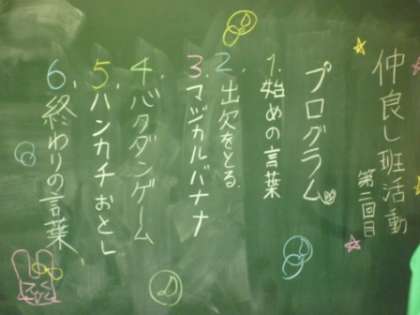 仲良し班活動
第二回目
プログラム
1.始めの言葉
2.出欠をとる
3.マジカルバナナ
4.バクダンゲーム
5.ハンカチおとし
6.終わりの言葉